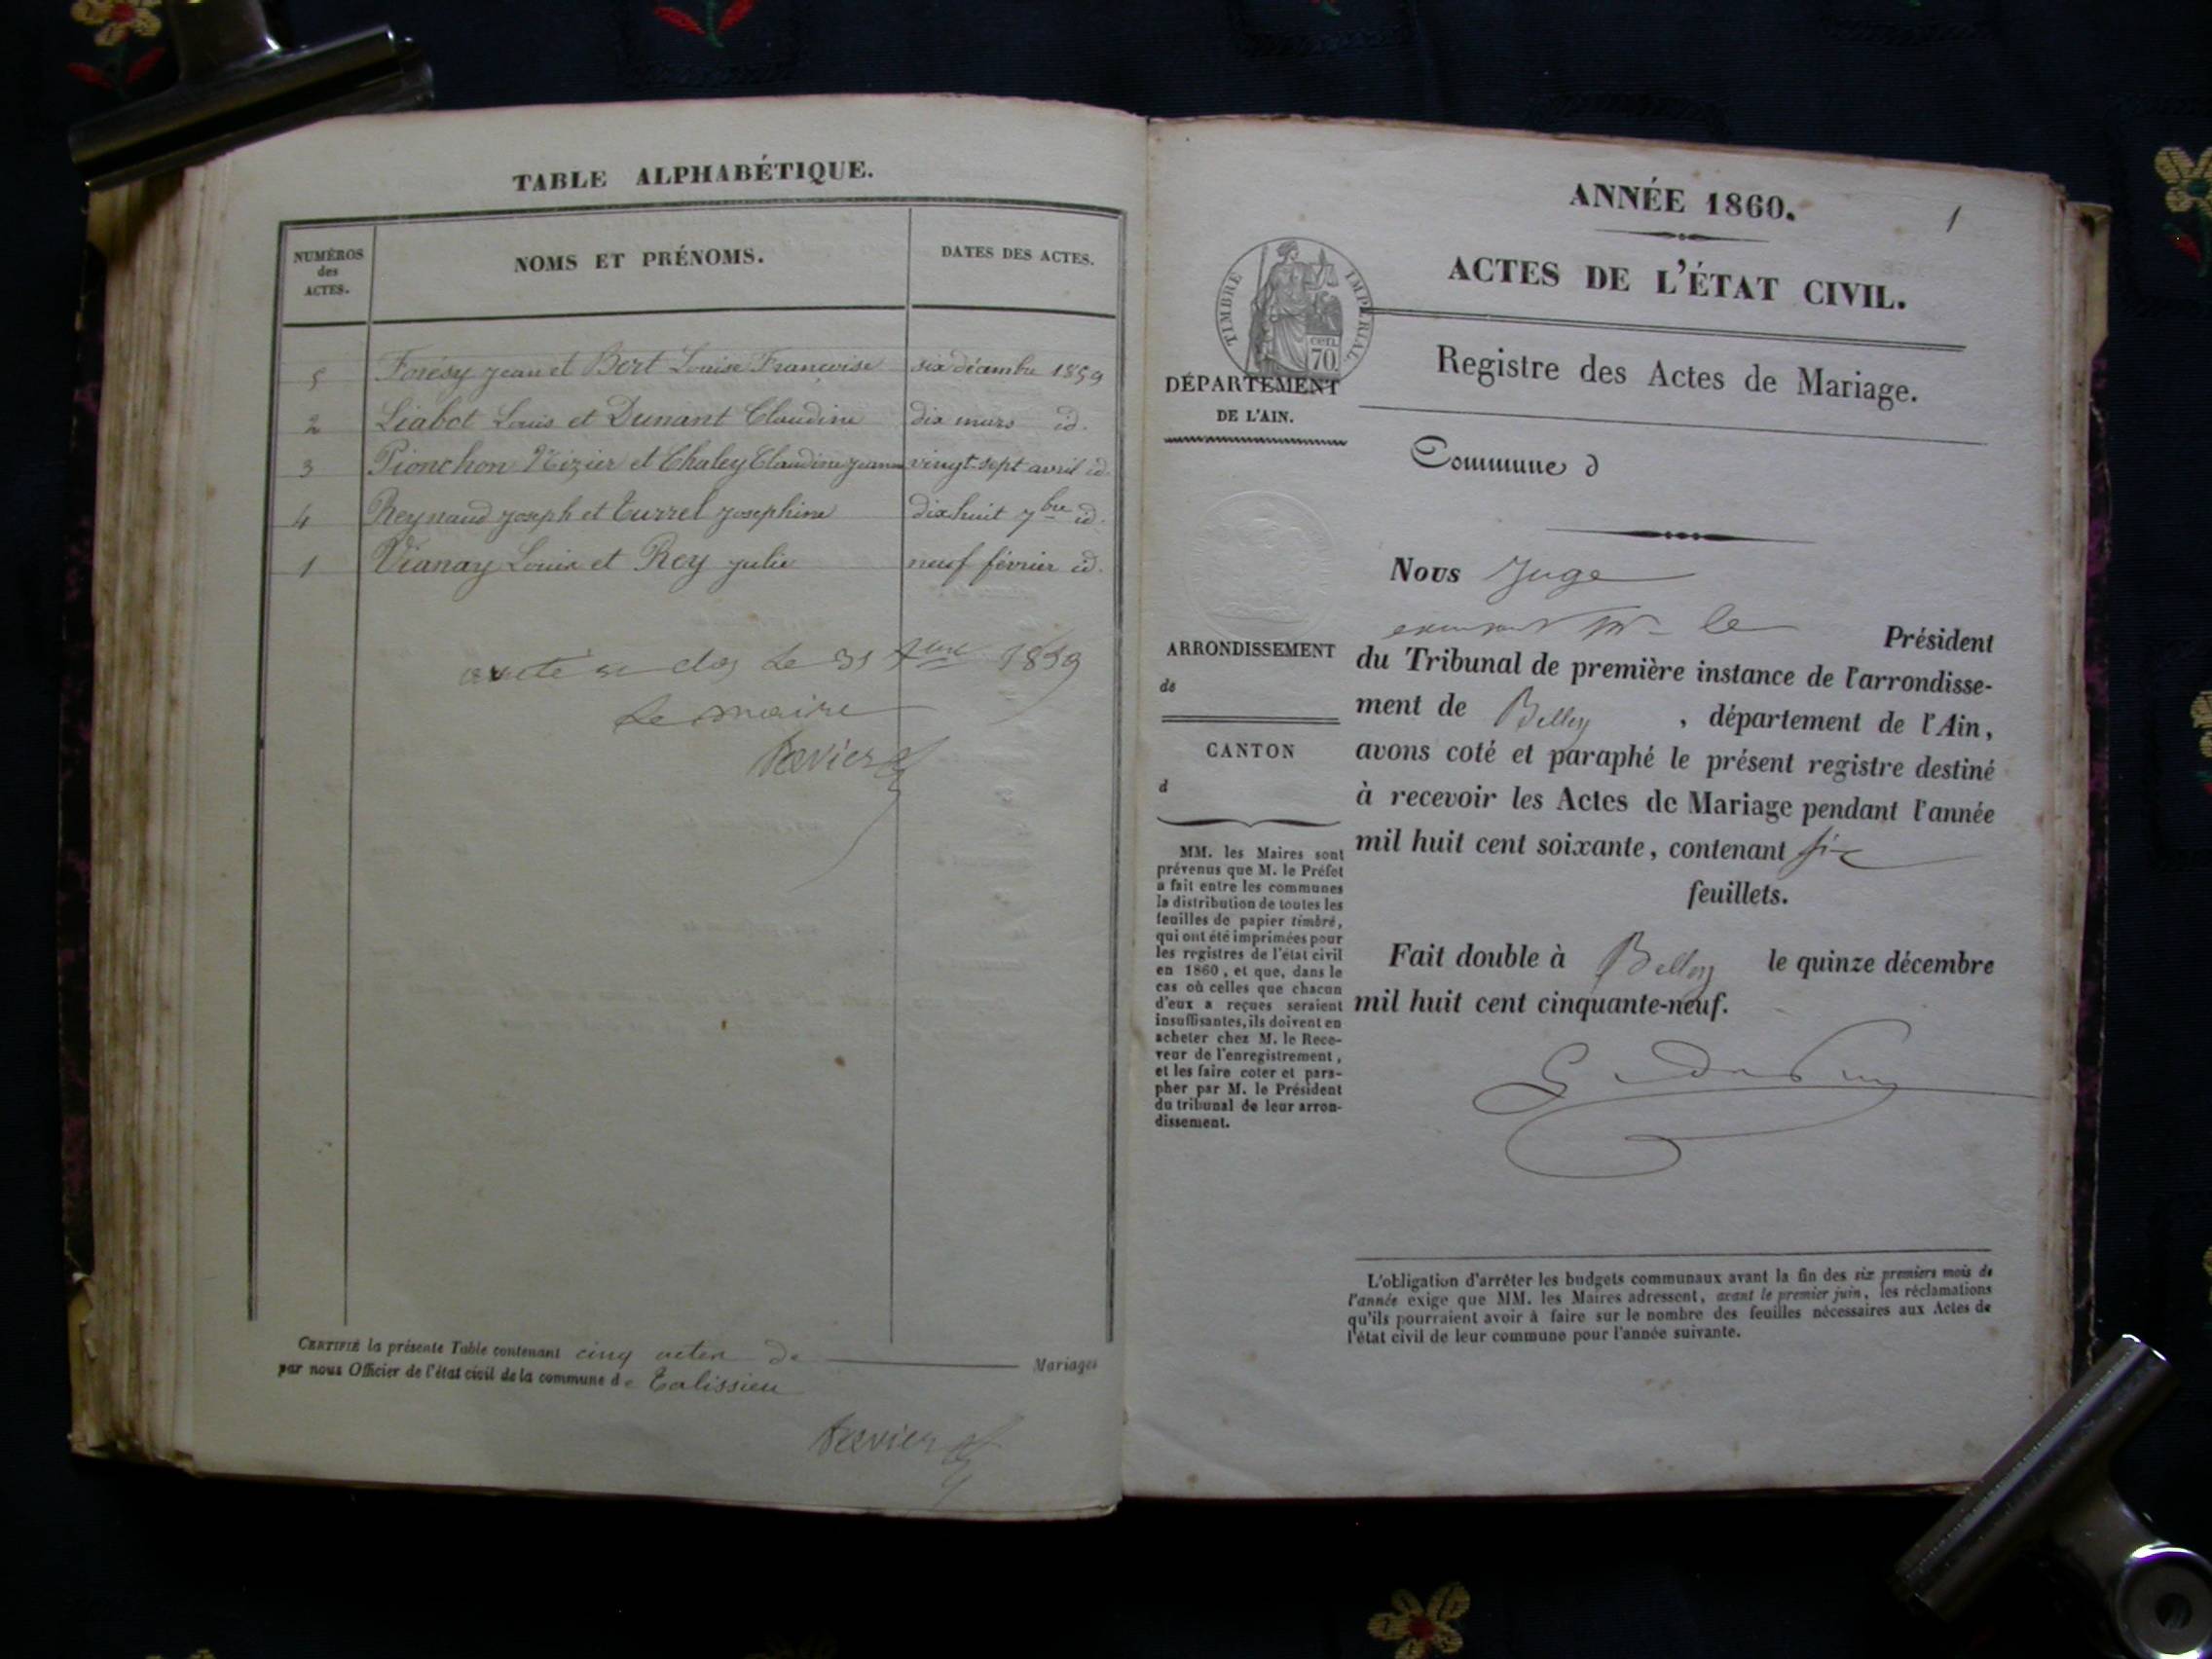 TABLE ALPHABÉTIQUE.
NUMÉROS
des
ACTES.
NOMS ET PRÉNOMS.
DATES DES ACTES.
5 Forésy Jean et Bert Louise Françoise six décembre 1859
2 Liabot Louis et Dunant Claudine dix mars id.
3 Pionchon Nizier et Chaley Claudine Jeanne vingt-sept avril id.
4 Reynaud Joseph et Turrel Josephine dix huit 7bre id.
1 Vianay Louis et Rey Julie neuf février id.
clos le 31 1859
Le maire
Tavier
CERTIFIÉ la présente Table contenant cinq actes de Mariages
par nous Officier de l'état civil de la commune de Talissieu
Tavier
1
ANNÉE 1860.
ACTES DE L'ÉTAT CIVIL.
TIMBRE IMPÉRIAL
cen.
70.
DÉPARTEMENT
DE L'AIN.
Registre des Actes de Mariage.
Commune d
Nous Juge
le Président
du Tribunal de première instance de l'arrondisse-
ment de Belley, département de l'Ain,
avons coté et paraphé le présent registre destiné
à recevoir les Actes de Mariage pendant l'année
mil huit cent soixante, contenant six
feuillets.
Fait double à Belley le quinze décembre
mil huit cent cinquante-neuf.
ARRONDISSEMENT
de
CANTON
d
MM. les Maires sont
prévenus que M. le Préfet
a fait entre les communes
la distribution de toutes les
feuilles de papier timbré,
qui ont été imprimées pour
les registres de l'état civil
en 1860, et que, dans le
cas où celles que chacun
d'eux a reçues seraient
insuffisantes, ils doivent en
acheter chez M. le Rece-
veur de l'enregistrement,
et les faire coter et para-
pher par M. le Président
du tribunal de leur arron-
dissement.
L'obligation d'arrêter les budgets communaux avant la fin des six premiers mois de
l'année exige que MM. les Maires adressent, avant le premier juin, les réclamations
qu'ils pourraient avoir à faire sur le nombre des feuilles nécessaires aux Actes de
l'état civil de leur commune pour l'année suivante.